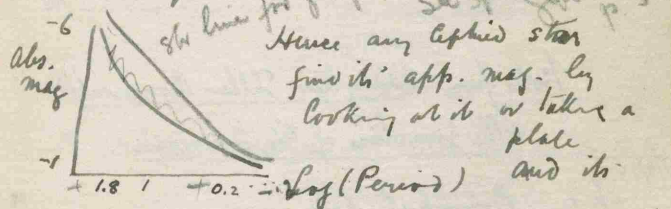 str line for
-6
Abs.
mag
-1
+ 1.8 1 + 0.2 Log (Period)
Hence any Cepheid star
find its' app. mag. by
looking at it or taking a
plate
and its